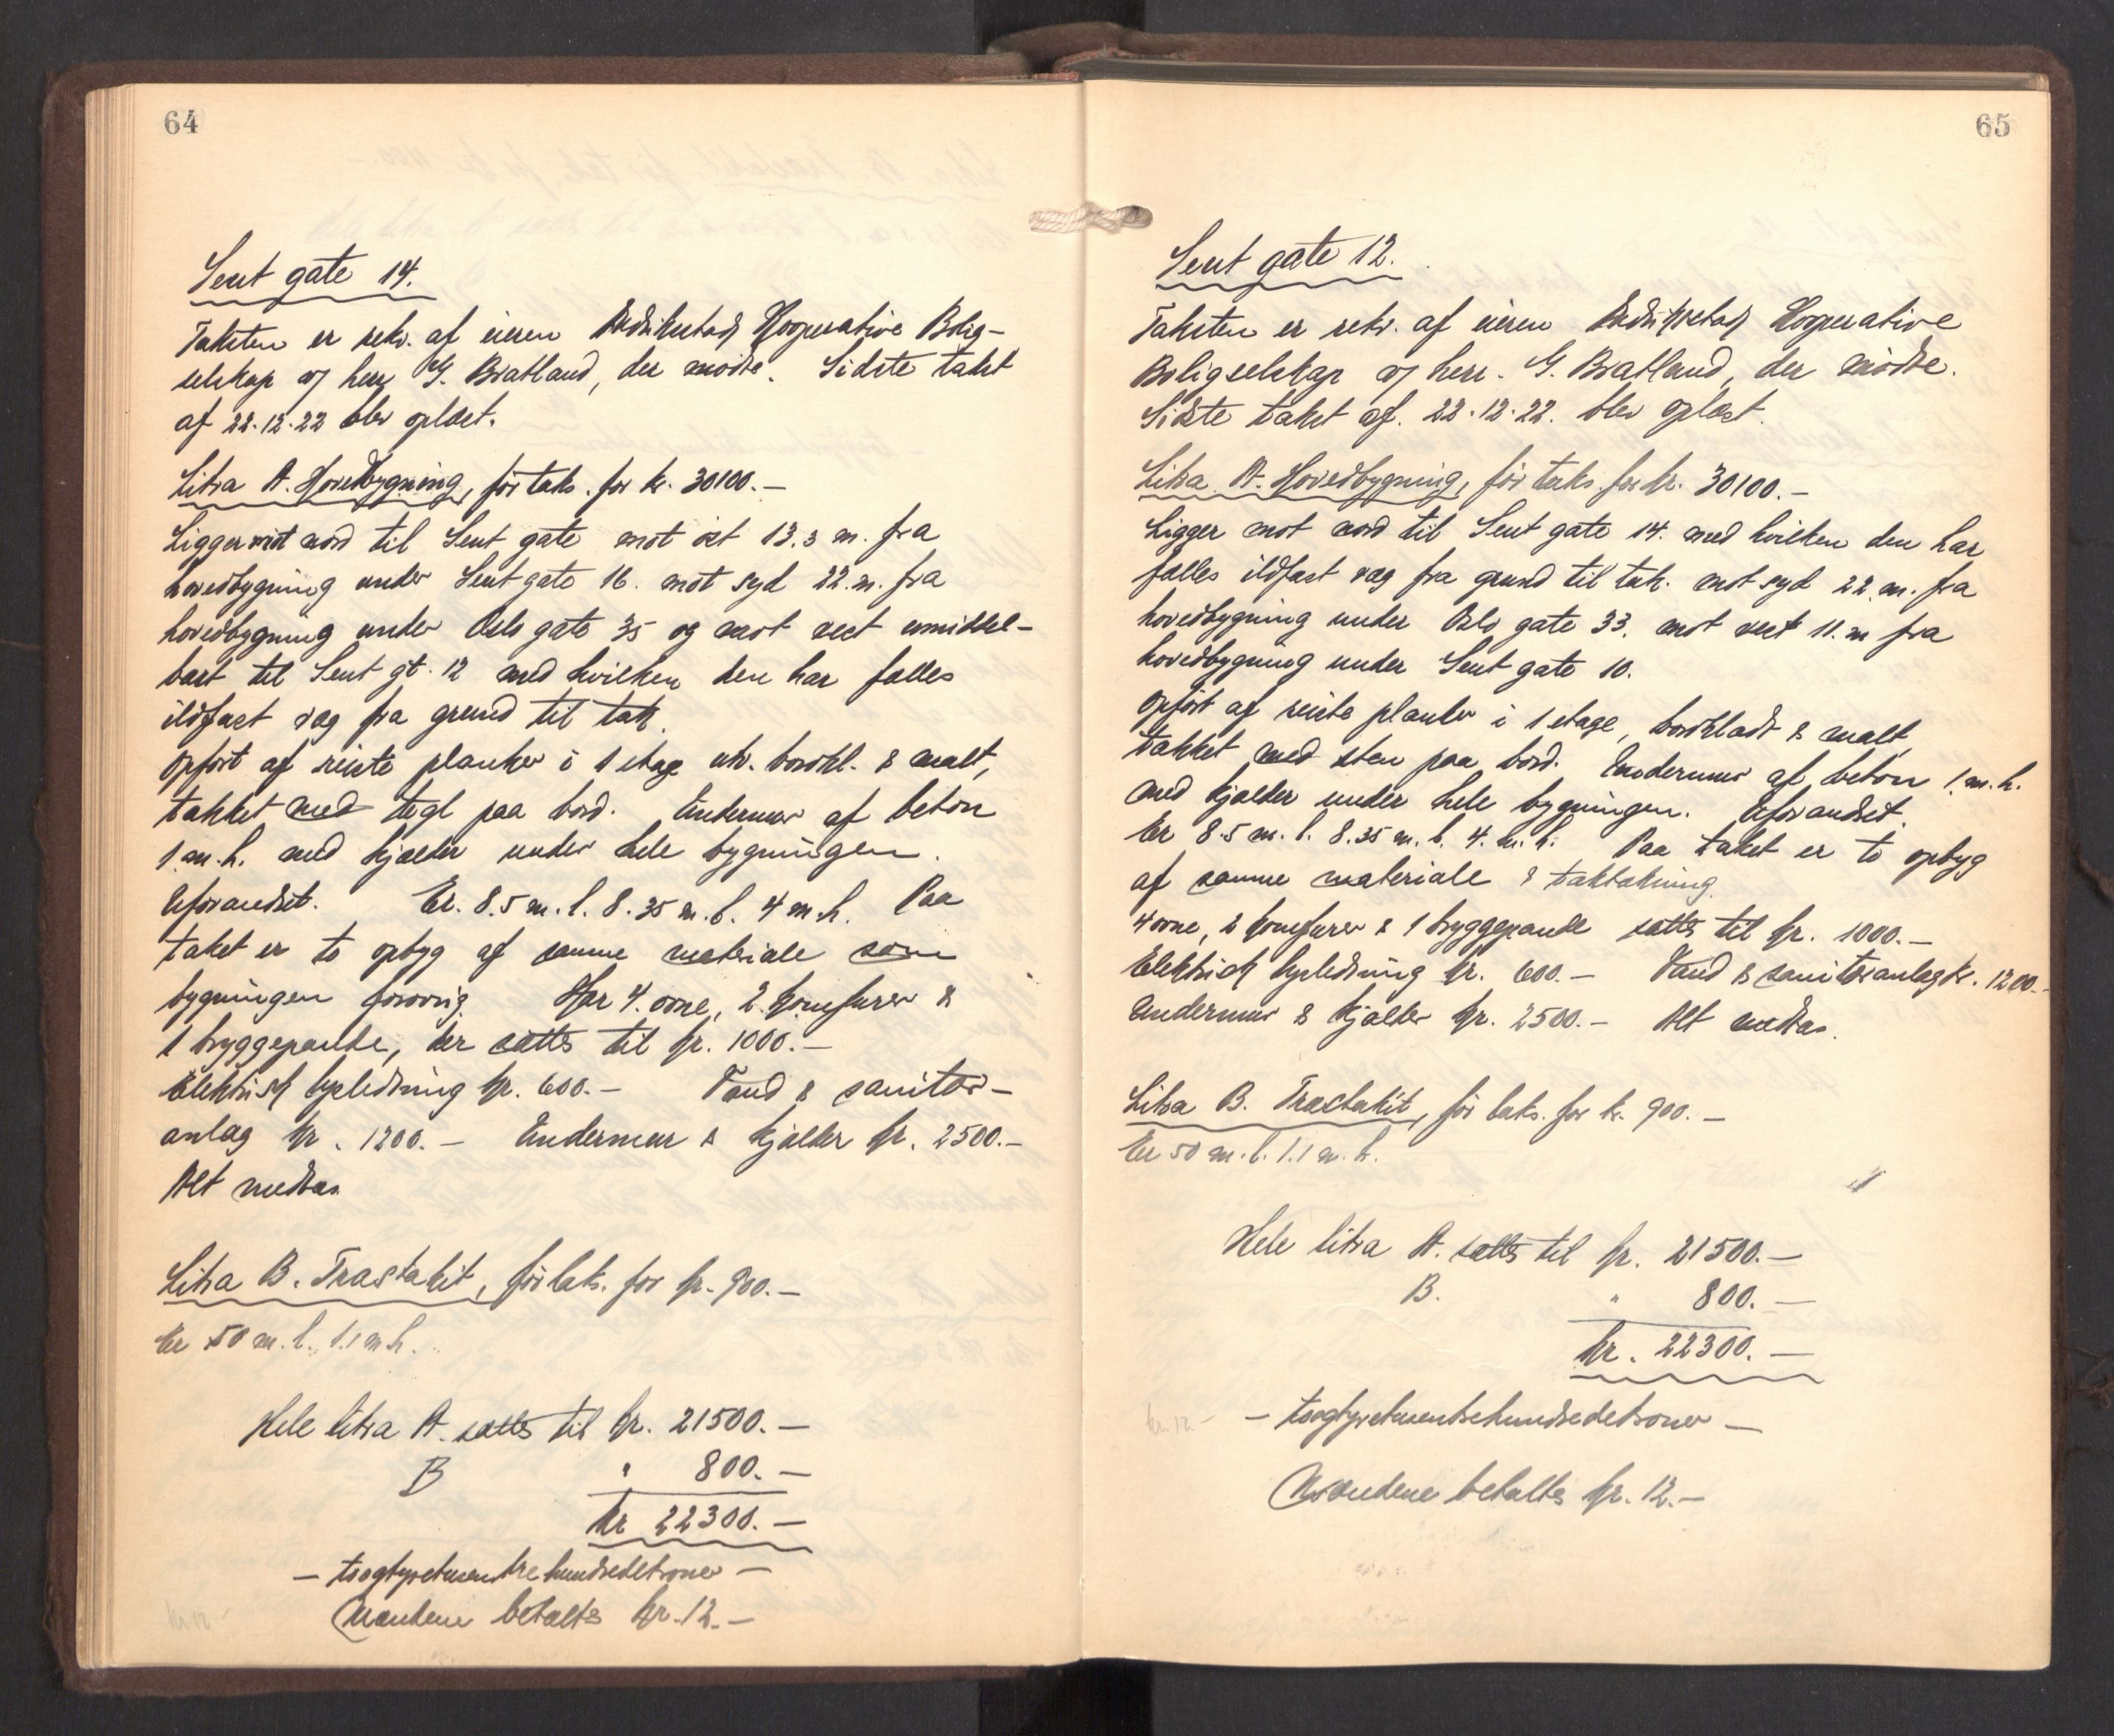 64
Lent gate 14.
Taksten er rekv. af eieren Fredrikstad Kooperative Bolig-
selskap v/ herr G. Bratland, der mødte. Sidste takst
af 22.12.22 blev oplæst.
Litra A. Hovedbygning, før taks. for kr. 30100.-
Ligger mot nord til Lent gate mot øst 13.3 m. fra
hovedbygning under Lent gate 16. mot syd 22.m. fra
hovedbygning under Oslo gate 35 og mot vest umiddel-
bart til Lent gt. 12 med hvilken den har fælles
ildfast væg fra grund til tak.
Opført af reiste planker i 1 etage utv. bordkl. & malt,
tækket med tegl paa bord. Undermur af beton
1 m.h. med kjælder under hele bygningen.
Uforandret. Er. 8.5 m.l. 8.35 m.b. 4 m.h. Paa
taket er to opbyg af samme materiale som
bygningen forøvrig. Har 4. ovne, 2. komfurer &
1 bryggepande, der sættes til kr. 1000.-
Elektrisk lysledning kr. 600.- Vand & sanitær-
anlæg kr. 1200.- Undermur & kjælder kr. 2500.-
Alt medtas.
Litra B. Træstakit, før taks. for kr. 900.-
Er 50 m.l. 1.1 m h.
Hele litra A. sættes til kr. 21500.-
B " 800.-
kr 22300.-
- toogtyvetusentrehundredekroner -
Mændene betaltes kr. 12.-
kr 12.-
65
Lent gate 12.
Taksten er rekv. af eieren Fredrikstad Kooperative
Boligselskap v/ herr. G. Bratland, der mødte.
Sidste takst af. 22.12.22. blev oplæst.
Litra A. Hovedbygning, før taks. for kr. 30100.-
Ligger mot nord til Lent gate 14. med hvilken den har
fælles ildfast væg fra grund til tak. mot syd 22 m. fra
hovedbygning under Oslo gate 33. mot vest 11. m fra
hovedbygning under Lent gate 10.
Opført af reiste planker i 1 etage, bordklædt & malt,
tækket med sten paa bord. Undermur af beton 1 m.h.
med kjælder under hele bygningen. Uforandret.
Er 8.5 m.l. 8.35 m.b. 4. m.h. Paa taket er to opbyg
af samme materiale & taktækning.
4 ovne, 2 komfurer & 1 bryggepande sættes til kr. 1000.-
Elektrisk lysledning kr. 600.- Vand & sanitæranlæg kr. 1200.-
Undermur & kjælder kr. 2500.- Alt medtas.
Litra B. Træstakit, før taks. for kr. 900.-
Er 50 m.l. 1.1 m.h.
Hele litra A. sættes til kr. 21500.-
B. " 800.-
kr. 22300.-
- toogtyvetusentrehundredekroner -
Mændene betaltes kr. 12.-
kr. 12.-